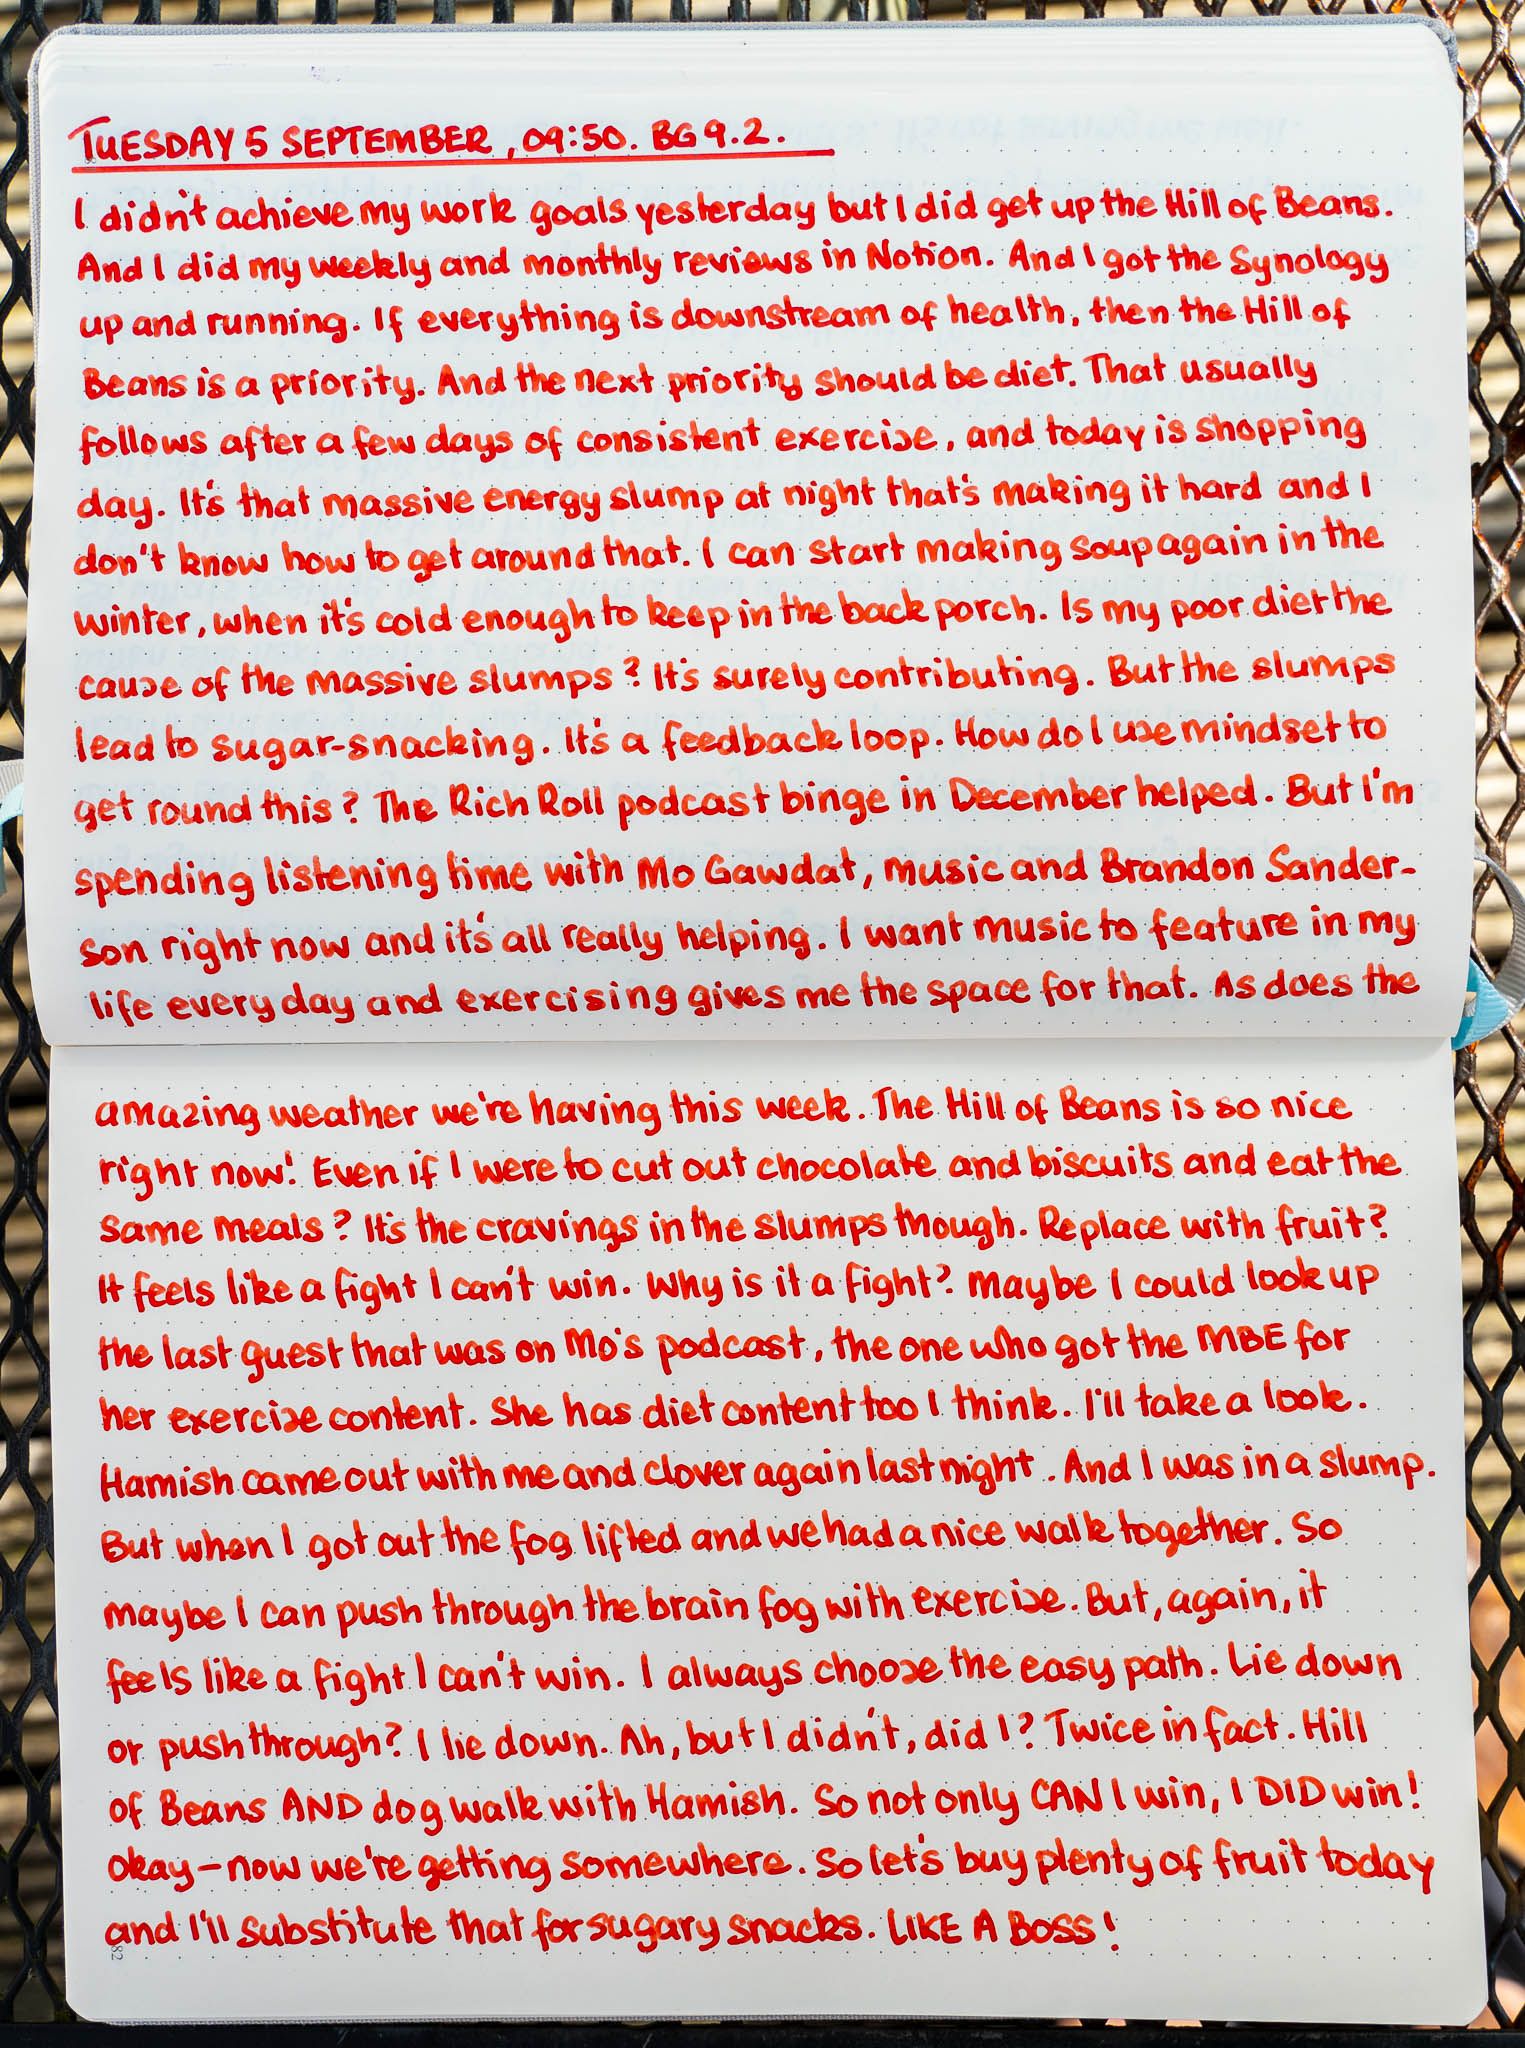 TUESDAY 5 SEPTEMBER, 09:50. BG 9.2.
I didn't achieve my work goals yesterday but I did get up the Hill of Beans.
And I did my weekly and monthly reviews in Notion. And I got the Synology
up and running. If everything is downstream of health, then the Hill of
Beans is a priority. And the next priority should be diet. That usually
follows after a few days of consistent exercise, and today is shopping
day. It's that massive energy slump at night that's making it hard and I
don't know how to get around that. I can start making soup again in the
winter, when it's cold enough to keep in the back porch. Is my poor diet the
cause of the massive slumps? It's surely contributing. But the slumps
lead to sugar-snacking. It's a feedback loop. How do I use mindset to
get round this? The Rich Roll podcast binge in December helped. But I'm
spending listening time with Mo Gawdat, music and Brandon Sander-
son right now and it's all really helping. I want music to feature in my
life every day and exercising gives me the space for that. As does the
amazing weather we're having this week. The Hill of Beans is so nice
right now! Even if I were to cut out chocolate and biscuits and eat the
same meals? It's the cravings in the slumps though. Replace with fruit?
It feels like a fight I can't win. Why is it a fight? Maybe I could look up
the last guest that was on Mo's podcast, the one who got the MBE for
her exercise content. She has diet content too I think. I'll take a look.
Hamish came out with me and Clover again last night. And I was in a slump.
But when I got out the fog lifted and we had a nice walk together. So
maybe I can push through the brain fog with exercise. But, again, it
feels like a fight I can't win. I always choose the easy path. Lie down
or push through? I lie down. Ah, but I didn't, did I? Twice in fact. Hill
of Beans AND dog walk with Hamish. So not only CAN I win, I DID win!
Okay – now we're getting somewhere. So let's buy plenty of fruit today
and I'll substitute that for sugary snacks. LIKE A BOSS!
82